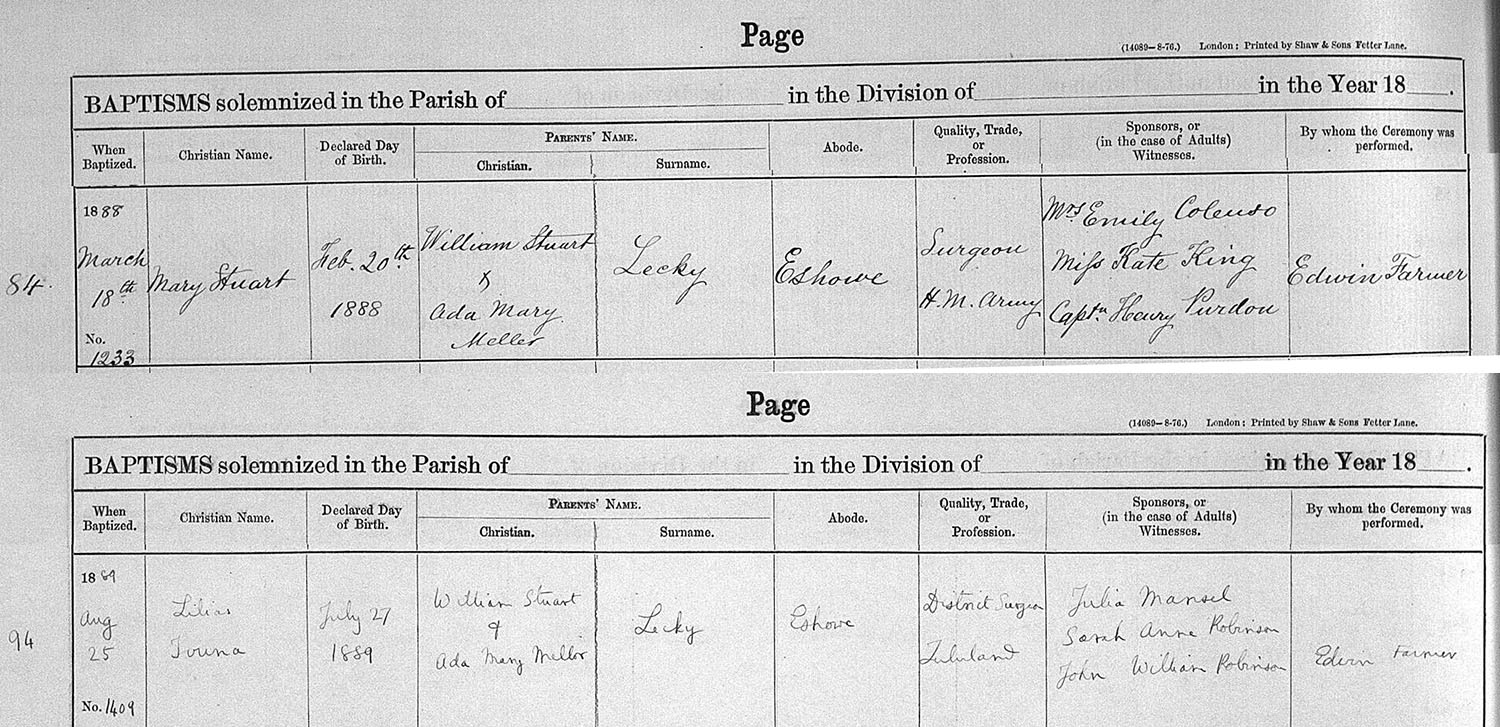 Page
(14089—8-76.) London: Printed by Shaw & Sons Fetter Lane.
BAPTISMS solemnized in the Parish of in the Division of in the Year 18 .
When Baptized.
Christian Name.
Declared Day of Birth.
Parents' Name.
Christian.
Surname.
Abode.
Quality, Trade, or Profession.
Sponsors, or (in the case of Adults) Witnesses.
By whom the Ceremony was performed.
84.
1888
March
18th
No.
1233
Mary Stuart
Feb. 20th
1888
William Stuart
&
Ada Mary
Meller
Lecky
Eshowe
Surgeon
H.M. Army
Mrs Emily Colenso
Miss Kate King
Captn Henry Purdon
Edwin Farmer
Page
(14089—8-76.) London: Printed by Shaw & Sons Fetter Lane.
BAPTISMS solemnized in the Parish of in the Division of in the Year 18 .
When Baptized.
Christian Name.
Declared Day of Birth.
Parents' Name.
Christian.
Surname.
Abode.
Quality, Trade, or Profession.
Sponsors, or (in the case of Adults) Witnesses.
By whom the Ceremony was performed.
94
1889
Aug
25
No. 1409
Lilias
July 27
1889
William Stuart
&
Ada Mary Mellor
Lecky
Eshowe
District Surgeon
Zululand
Julia Mansel
Sarah Anne Robinson
John William Robinson
Edwin Farmer